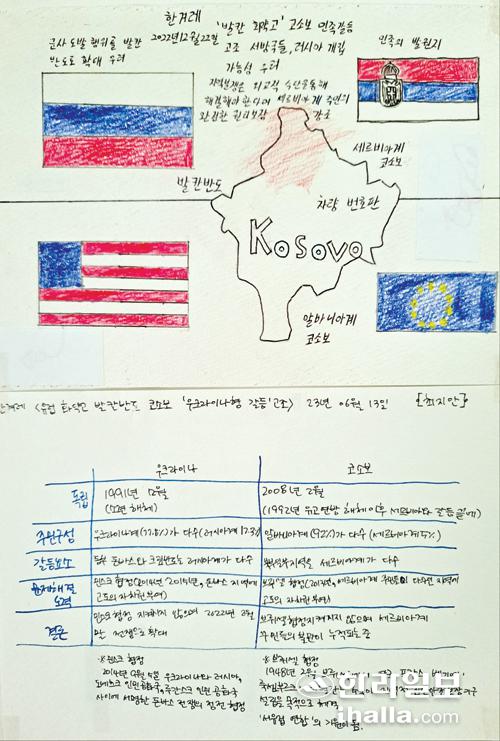 한겨레 '발칸 화약고' 코소보 민족갈등
2022년 12월 22일 고조 서방국들, 러시아 개입
가능성 우려
군사 도발 행위를 발칸
반도로 확대 우려
민족의 발원지
지역분쟁은 외교적 수단을 통해
해결해야 한다며 세르비아계 주민의
완전한 권리보장 강조
세르비아계
코소보
발칸반도
차량 번호판
Kosovo
알바니아계
코소보
한겨레 <유럽 화약고 발칸반도 코소보 '우크라이나형 갈등' 고조> 23년 06월 13일 [최지안]
우크라이나 코소보
독립 1991년 12월 2008년 2월
(소련 해체) (1992년 유고연방 해체 이후 세르비아와 갈등 끝에)
주민구성 우크라이나계(77.8%)가 다수(러시아계 17.3%) 알바니아계(92%)가 다수(세르비아계 5%)
갈등요소 동부 돈바스와 크림반도는 러시아계가 다수 북부지역은 세르비아계가 다수
문제해결 민스크 협정(2014년, 2015년, 돈바스 지역에 브뤼셀 협정(2013년, 세르비아계 주민들이 다수인 지역에
노력 고도의 자치권 부여) 고도의 자치권 부여)
결론 민스크 협정 지켜지지 않으며 2022년 2월 브뤼셀 협정 지켜지지 않으며 세르비아계
전쟁으로 확대 주민들의 불만이 누적되는 중
※민스크 협정 ※브뤼셀 협정
2014년 9월 5일 우크라이나와 러시아, 1948년 3월
도네츠크 인민 공화국, 루간스크 인민 공화국
사이에 서명한 돈바스 전쟁의 정전 협정 설립을 목적으로 체결
'서유럽 연합'의 기원이 됨
한라일보
ihalla.com